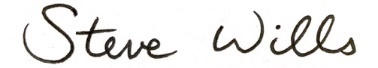 Steve Wills